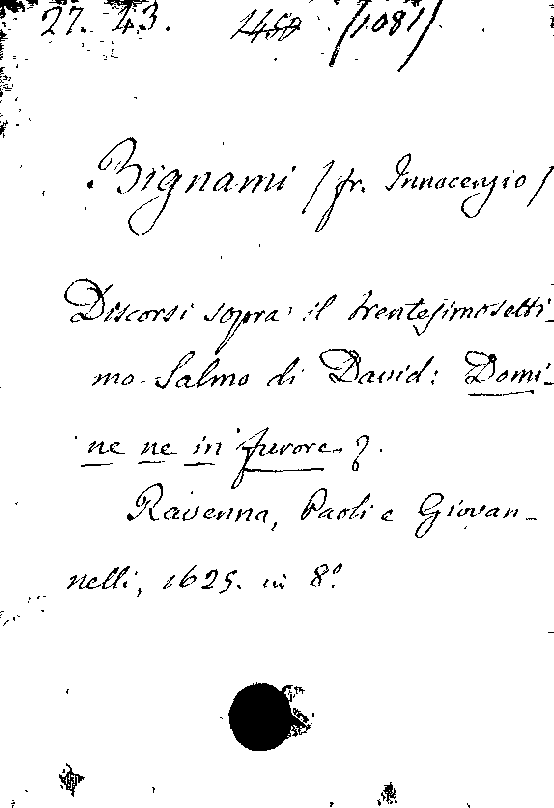 27. 43. 1450 /1081/
Bignami /fr. Innocenzio/
Discorsi sopra il trentesimosetti-
mo Salmo di David: Domi-
ne ne in furore
Ravenna, Paoli e Giovan-
nelli, 1625. in 8°.